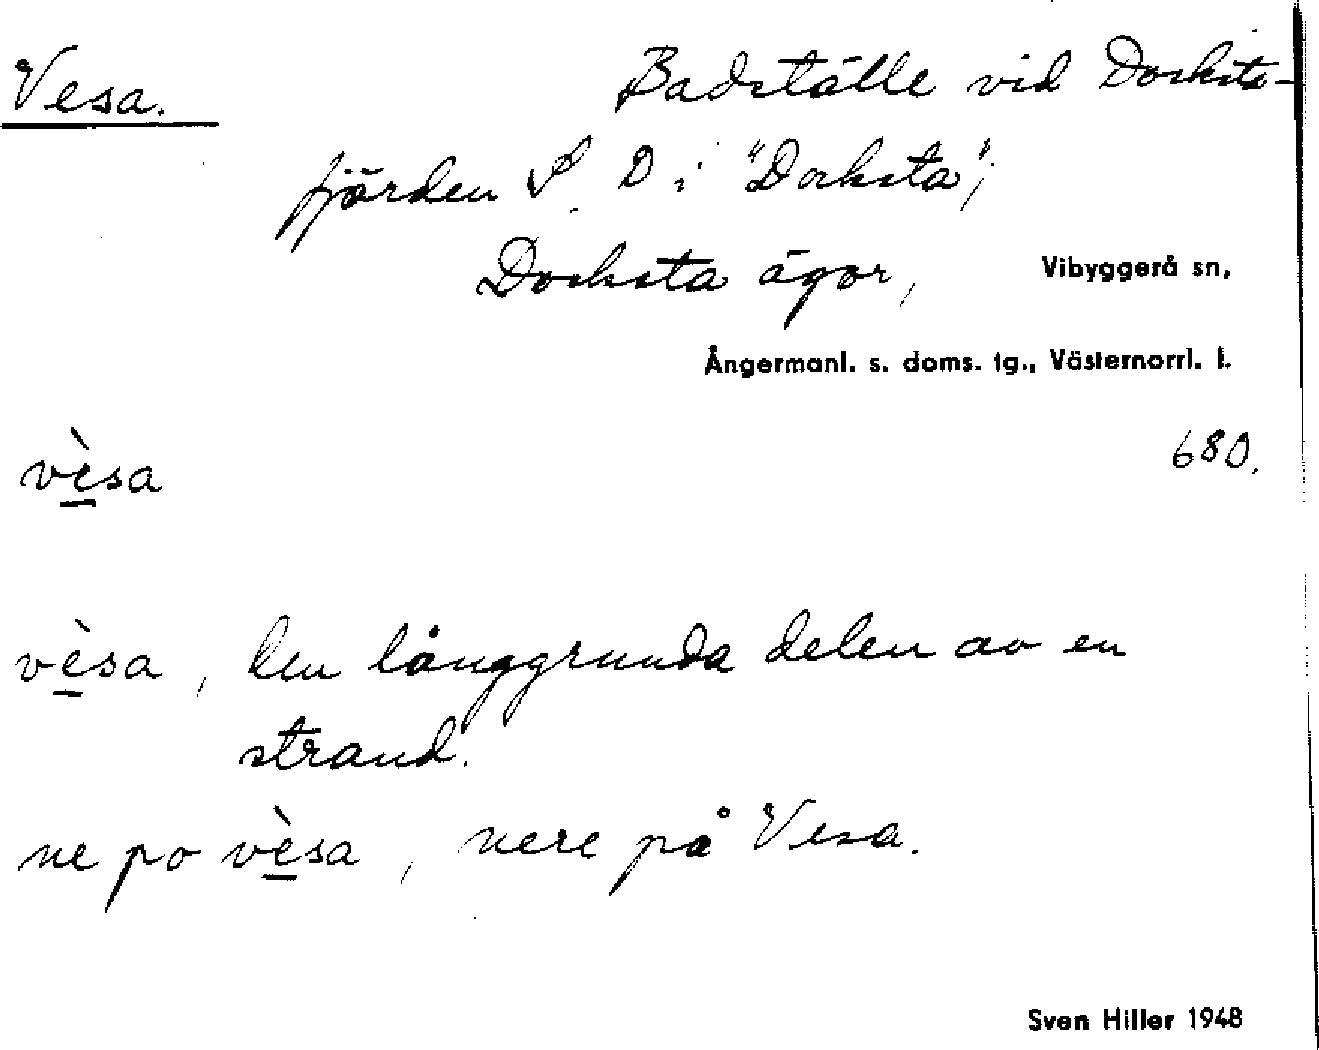 Vesa. Badställe vid Docksta-
fjärden S. D i "Docksta",
Docksta ägor, Vibyggerå sn,
Ångermanl. s. doms. tg., Västernorrl. l.
vèsa 680.
vèsa, den långgrunda delen av en
strand.
ne po vèsa, nere på Vesa.
Sven Hiller 1948